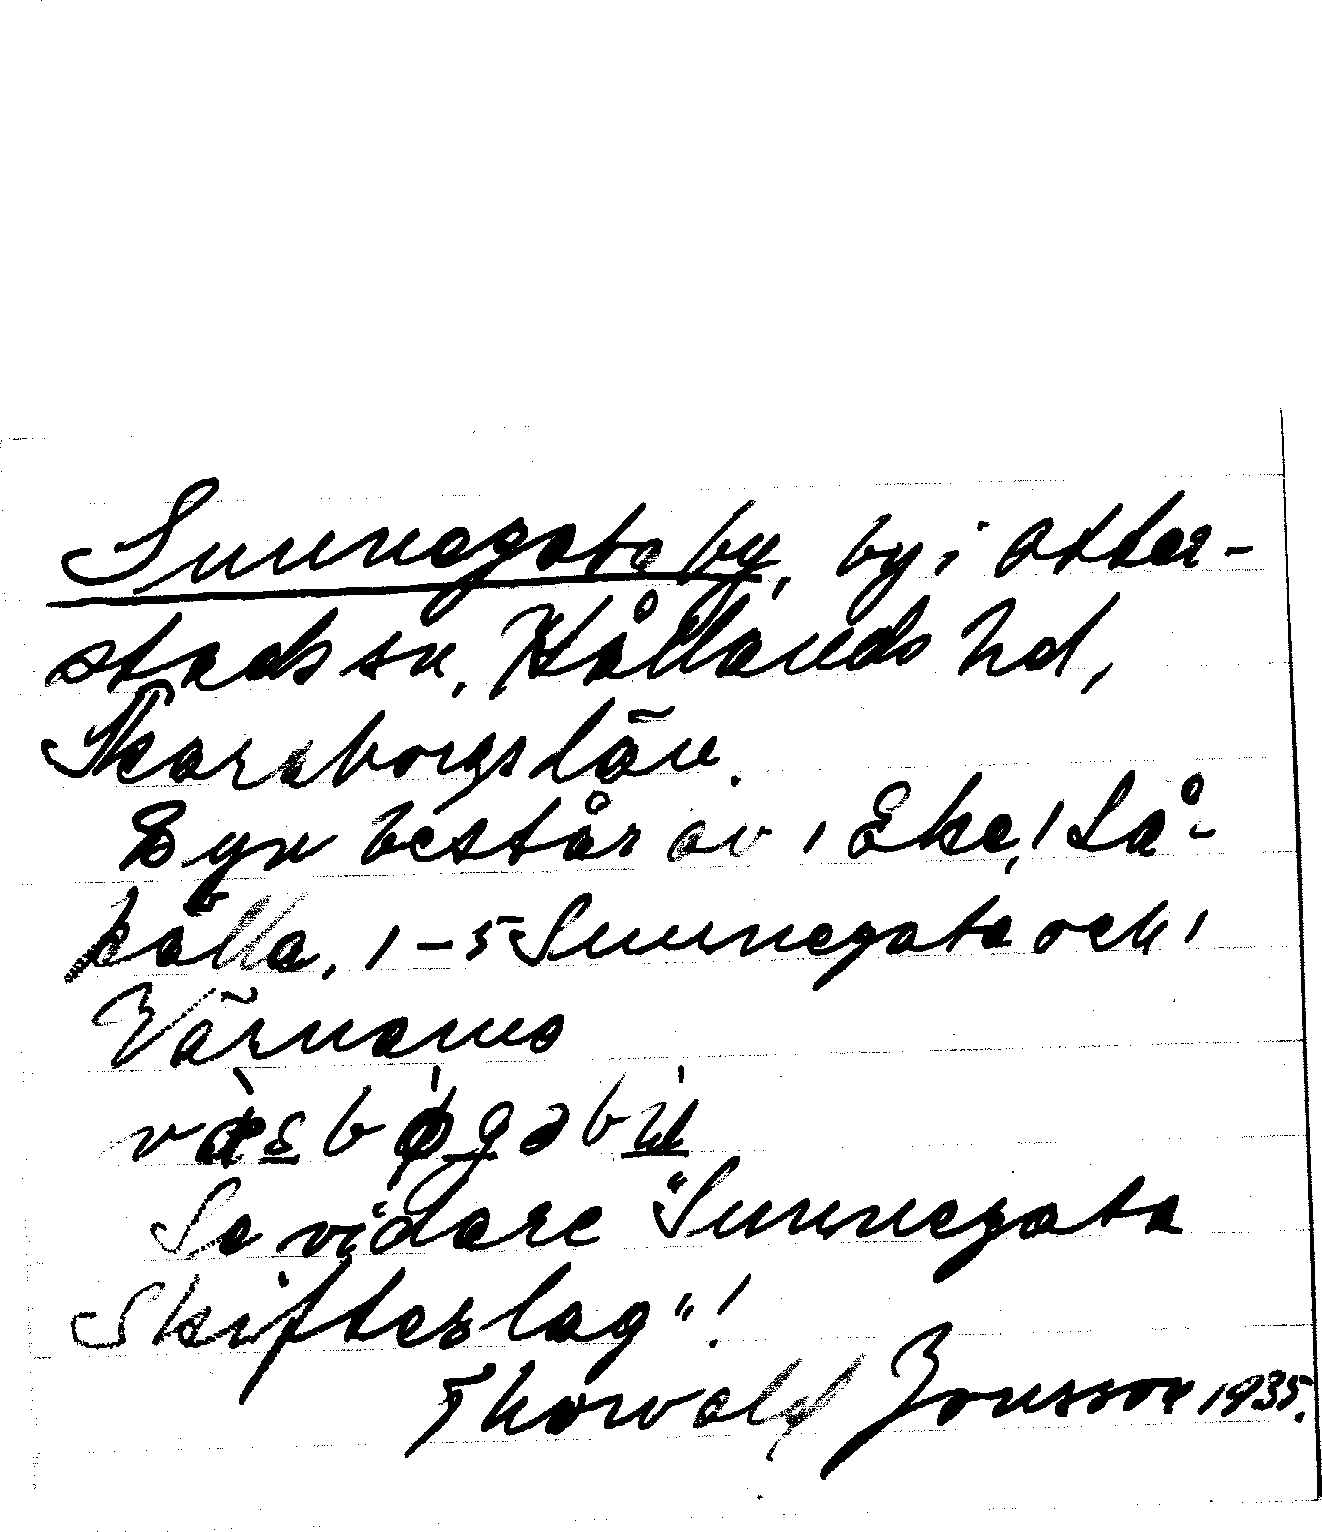 Sunnegata by, by i Otter-
stads sn, Kållands hd,
Skaraborgs län.
Byn består av 1 Eke, 1 Lå-
källa, 1-5 Sunnegata och 1
Värnamo
Se vidare "Sunnegata
Skifteslag"!
Thorvald Jonsson 1935.